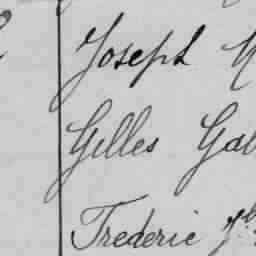 Joseph
Gilles Gab
Frederic